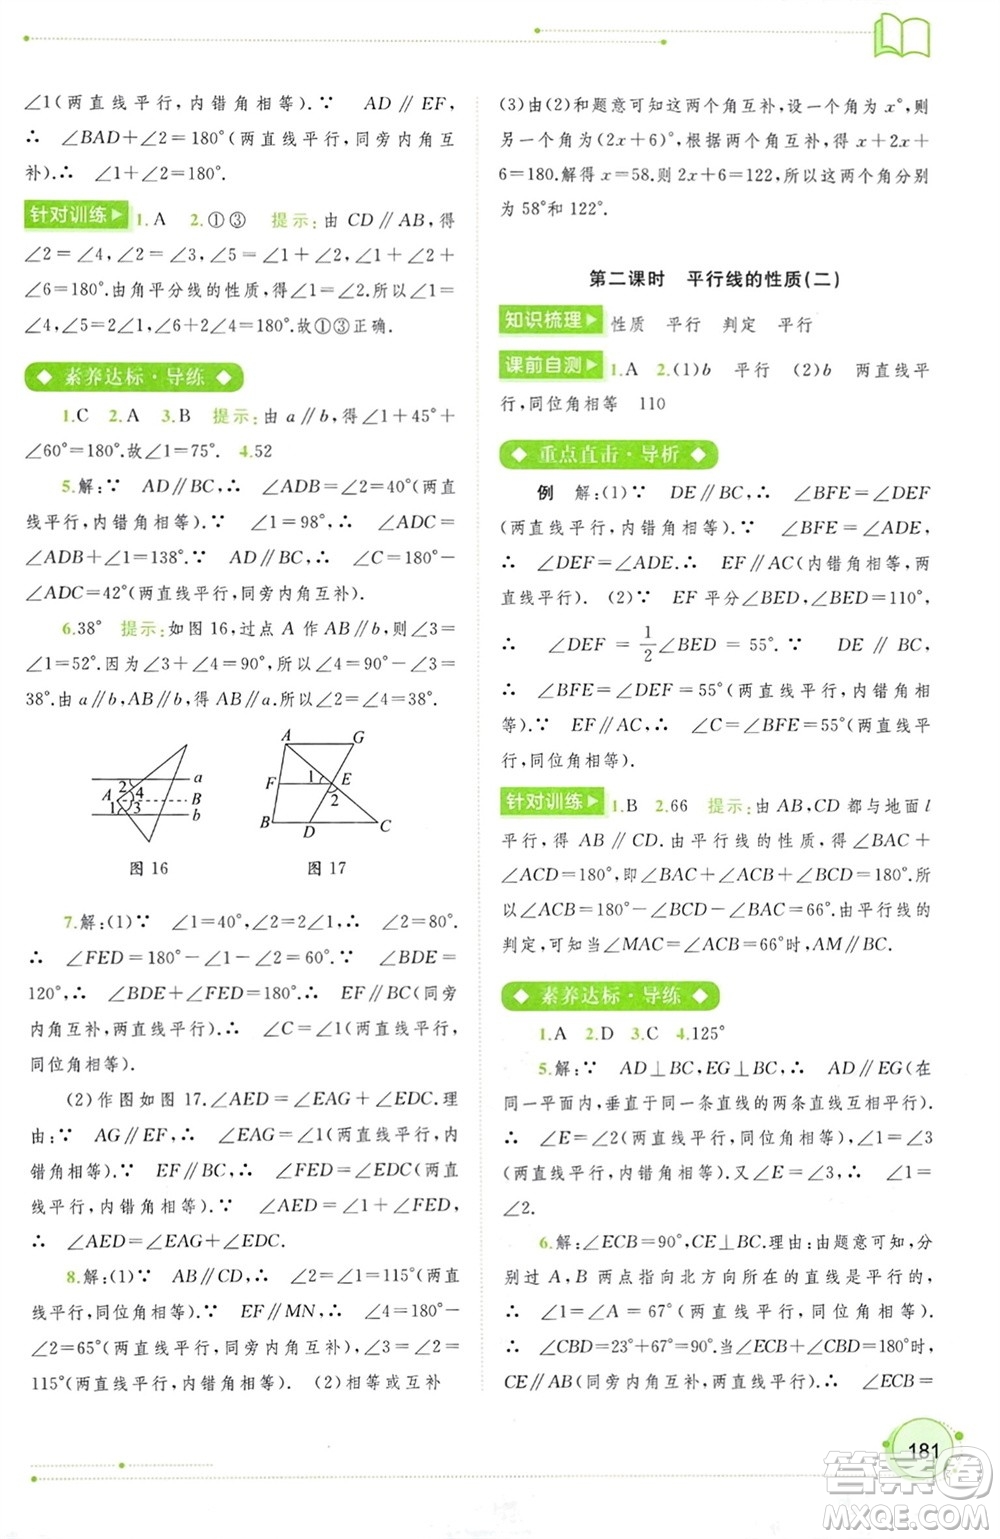 ∠1(两直线平行,内错角相等).∵ AD∥EF,
∴ ∠BAD+∠2=180°(两直线平行,同旁内角互
补).∴ ∠1+∠2=180°.
针对训练 1.A 2.①③ 提示:由 CD∥AB,得
∠2=∠4,∠2+∠3,∠5=∠1+∠2,∠1+∠2+
∠6=180°.由角平分线的性质,得∠1=∠2.所以∠1=
∠4,∠5=2∠1,∠6+2∠1=180°.故①③正确.
素养达标·导练
1.C 2.A 3.B 提示:由 a∥b,得∠1+45°+
∠60°=180°.故∠1=75°. 4.52
5.解:∵ AD∥BC,∴ ∠ADB=∠2=40°(两直
线平行,内错角相等).∵ ∠1=98°,∴ ∠ADC=
∠ADB+∠1=138°.∵ AD∥BC,∴ ∠C=180°-
∠ADC=42°(两直线平行,同旁内角互补).
6.38° 提示:如图 16,过点 A 作 AB∥b,则∠3=
∠1=52°.因为∠3+∠4=90°,所以∠4=90°-∠3=
38°.由 a∥b,AB∥b,得 AB∥a.所以∠2=∠4=38°.
2 4 A 1 3 a B b
A G F 1 E 2 B D C
图 16 图 17
7.解:(1)∵ ∠1=40°,∠2=2∠1,∴ ∠2=80°.
∴ ∠FED=180°-∠1-∠2=60°.∵ ∠BDE=
120°,∴ ∠BDE+∠FED=180°.∴ EF∥BC(同旁
内角互补,两直线平行).∴ ∠C=∠1=40°(两直线平行,
同位角相等).
(2)作图如图 17.∠AED=∠EAG+∠EDC.理
由:∵ AG∥EF,∴ ∠EAG=∠1(两直线平行,内
错角相等).∵ EF∥BC,∴ ∠FED=∠EDC(两直
线平行,内错角相等).∵ ∠AED=∠1+∠FED,
∴ ∠AED=∠EAG+∠EDC.
8.解:(1)∵ AB∥CD,∴ ∠2=∠1=115°(两直
线平行,同位角相等).∵ EF∥MN,∴ ∠4=180°-
∠2=65°(两直线平行,同旁内角互补).∴ ∠3=∠2=
115°(两直线平行,内错角相等). (2)相等或互补
(3)由(2)和题意可知这两个角互补,设一个角为 x°,则
另一个角为(2x+6)°,根据两个角互补,得 x+2x+
6=180.解得 x=58.则 2x+6=122,所以这两个角分别
为 58°和 122°.
第二课时 平行线的性质(二)
知识梳理 性质 平行 判定 平行
课前自测 1.A 2.(1)b 平行 (2)b 两直线平
行,同位角相等 110
重点直击·导析
例 解:(1)∵ DE∥BC,∴ ∠BFE=∠DEF
(两直线平行,内错角相等).∵ ∠BFE=∠ADE,
∴ ∠DEF=∠ADE.∴ EF∥AC(内错角相等,两
直线平行). (2)∵ EF 平分∠BED,∠BED=110°,
∴ ∠DEF=1/2∠BED=55°.∵ DE∥BC,
∴ ∠BFE=∠DEF=55°(两直线平行,内错角相
等).∵ EF∥AC,∴ ∠C=∠BFE=55°(两直线平
行,同位角相等).
针对训练 1.B 2.66 提示:由 AB,CD 都与地面 l
平行,得 AB∥CD.由平行线的性质,得∠BAC+
∠ACD=180°,即∠BAC+∠ACB+∠BCD=180°.所
以∠ACB=180°-∠BCD-∠BAC=66°.由平行线的
判定,可知当∠MAC=∠ACB=66°时,AM∥BC.
素养达标·导练
1.A 2.D 3.C 4.125°
5.解:∵ AD⊥BC,EG⊥BC,∴ AD∥EG(在
同一平面内,垂直于同一条直线的两条直线互相平行).
∴ ∠E=∠2(两直线平行,同位角相等),∠1=∠3
(两直线平行,内错角相等).又∠E=∠3,∴ ∠1=
∠2.
6.解:∠ECB=90°,CE∥AB.理由:由题意可知,分
别过 A,B 两点指向北方向所在的直线互相平行,
∴ ∠1=∠A=67°(两直线平行,同位角相等).
∴ ∠CBD=23°+67°=90°.当∠ECB+∠CBD=180°时,
CE∥AB(同旁内角互补,两直线平行).∴ ∠ECB=
181
答案圈
MXQE.COM